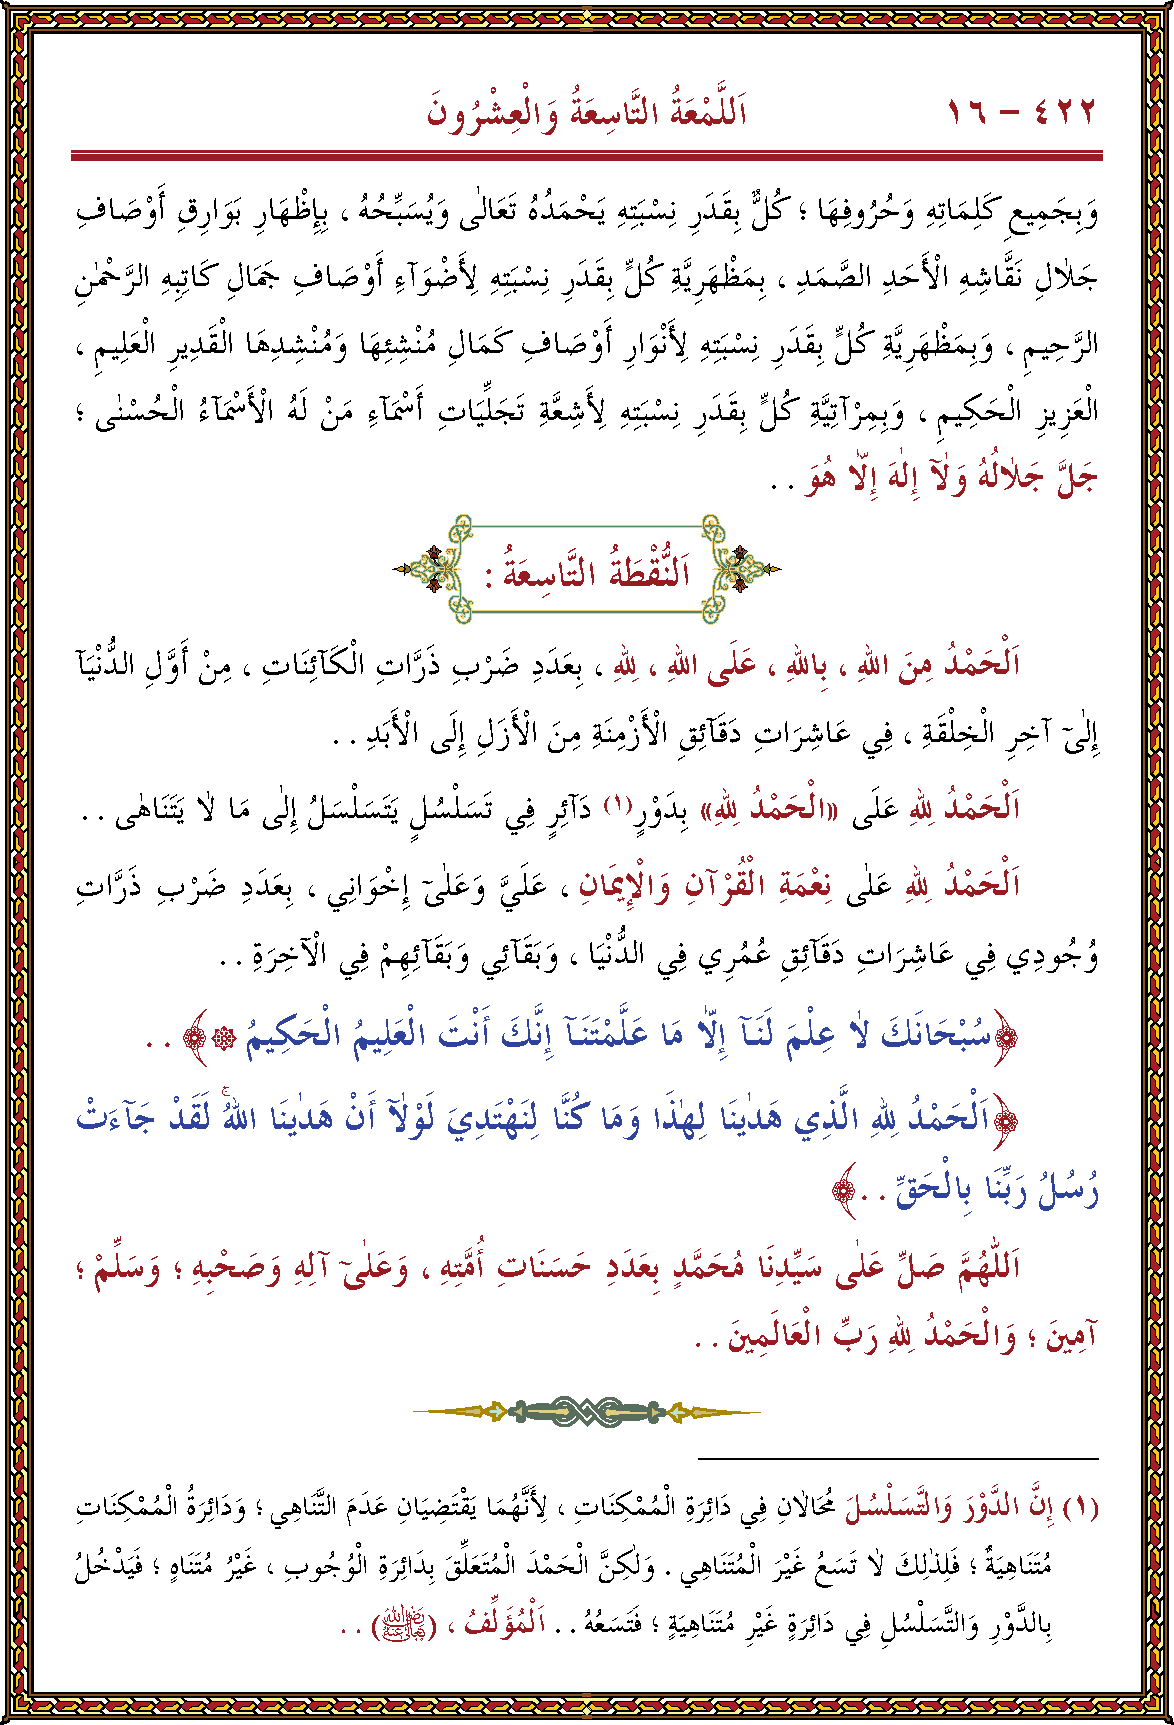 ٤٢٢ – ١٦ اَللَّمْعَةُ التَّاسِعَةُ وَالْعِشْرُونَ
وَبِجَمِيعِ كَلِمَاتِهِ وَحُرُوفِهَا ؛ كُلٌّ بِقَدَرِ نِسْبَتِهِ يَحْمَدُهُ تَعَالٰى وَيُسَبِّحُهُ ، بِإِظْهَارِ بَوَارِقِ أَوْصَافِ
جَلاٰلِ نَقَّاشِهِ الْأَحَدِ الصَّمَدِ ، بِمَظْهَرِيَّةِ كُلٍّ بِقَدَرِ نِسْبَتِهِ لِأَضْوَآءِ أَوْصَافِ جَمَالِ كَاتِبِهِ الرَّحْمٰنِ
الرَّحِيمِ ، وَبِمَظْهَرِيَّةِ كُلٍّ بِقَدَرِ نِسْبَتِهِ لِأَنْوَارِ أَوْصَافِ كَمَالِ مُنْشِئِهَا وَمُنْشِدِهَا الْقَدِيرِ الْعَلِيمِ ،
الْعَزِيزِ الْحَكِيمِ ، وَبِمِرْآتِيَّةِ كُلٍّ بِقَدَرِ نِسْبَتِهِ لِأَشِعَّةِ تَجَلِّيَاتِ أَسْمَآءِ مَنْ لَهُ الْأَسْمَآءُ الْحُسْنٰى ؛
جَلَّ جَلاٰلُهُ وَلآٰ إِلٰهَ إِلاّٰ هُوَ . .
اَلنُّقْطَةُ التَّاسِعَةُ :
اَلْحَمْدُ مِنَ اللهِ ، بِاللهِ ، عَلَى اللهِ ، لِلهِ ، بِعَدَدِ ضَرْبِ ذَرَّاتِ الْكَآئِنَاتِ ، مِنْ أَوَّلِ الدُّنْيَآ
إِلٰىٓ آخِرِ الْخِلْقَةِ ، فِي عَاشِرَاتِ دَقَآئِقِ الْأَزْمِنَةِ مِنَ الْأَزَلِ إِلَى الْأَبَدِ . .
اَلْحَمْدُ لِلهِ عَلَى «الْحَمْدُ لِلهِ» بِدَوْرٍ(١) دَآئِرٍ فِي تَسَلْسُلٍ يَتَسَلْسَلُ إِلٰى مَا لاٰ يَتَنَاهٰى . .
اَلْحَمْدُ لِلهِ عَلٰى نِعْمَةِ الْقُرْآنِ وَالْإِيمَانِ ، عَلَيَّ وَعَلٰىٓ إِخْوَانِي ، بِعَدَدِ ضَرْبِ ذَرَّاتِ
وُجُودِي فِي عَاشِرَاتِ دَقَآئِقِ عُمُرِي فِي الدُّنْيَا ، وَبَقَآئِي وَبَقَآئِهِمْ فِي الْآخِرَةِ . .
﴿سُبْحَانَكَ لاٰ عِلْمَ لَنَآ إِلاّٰ مَا عَلَّمْتَنَآ إِنَّكَ أَنْتَ الْعَلِيمُ الْحَكِيمُ ۞﴾ . .
﴿اَلْحَمْدُ لِلهِ الَّذِي هَدٰينَا لِهٰذَا وَمَا كُنَّا لِنَهْتَدِيَ لَوْلآٰ أَنْ هَدٰينَا اللهُۚ لَقَدْ جَآءَتْ
رُسُلُ رَبِّنَا بِالْحَقِّ . .﴾
اَللّٰهُمَّ صَلِّ عَلٰى سَيِّدِنَا مُحَمَّدٍ بِعَدَدِ حَسَنَاتِ أُمَّتِهِ ، وَعَلٰىٓ آلِهِ وَصَحْبِهِ ؛ وَسَلِّمْ ؛
آمِينَ ؛ وَالْحَمْدُ لِلهِ رَبِّ الْعَالَمِينَ . .
(١) إِنَّ الدَّوْرَ وَالتَّسَلْسُلَ مُحَالاٰنِ فِي دَائِرَةِ الْمُمْكِنَاتِ ، لِأَنَّهُمَا يَقْتَضِيَانِ عَدَمَ التَّنَاهِي ؛ وَدَائِرَةُ الْمُمْكِنَاتِ
مُتَنَاهِيَةٌ ؛ فَلِذٰلِكَ لاٰ تَسَعُ غَيْرَ الْمُتَنَاهِي . وَلٰكِنَّ الْحَمْدَ الْمُتَعَلِّقَ بِدَائِرَةِ الْوُجُوبِ ، غَيْرُ مُتَنَاهٍ ؛ فَيَدْخُلُ
بِالدَّوْرِ وَالتَّسَلْسُلِ فِي دَائِرَةٍ غَيْرِ مُتَنَاهِيَةٍ ؛ فَتَسَعُهُ . . اَلْمُؤَلِّفُ ، (رَضِيَ اللهُ تَعَالٰى عَنْهُ) . .